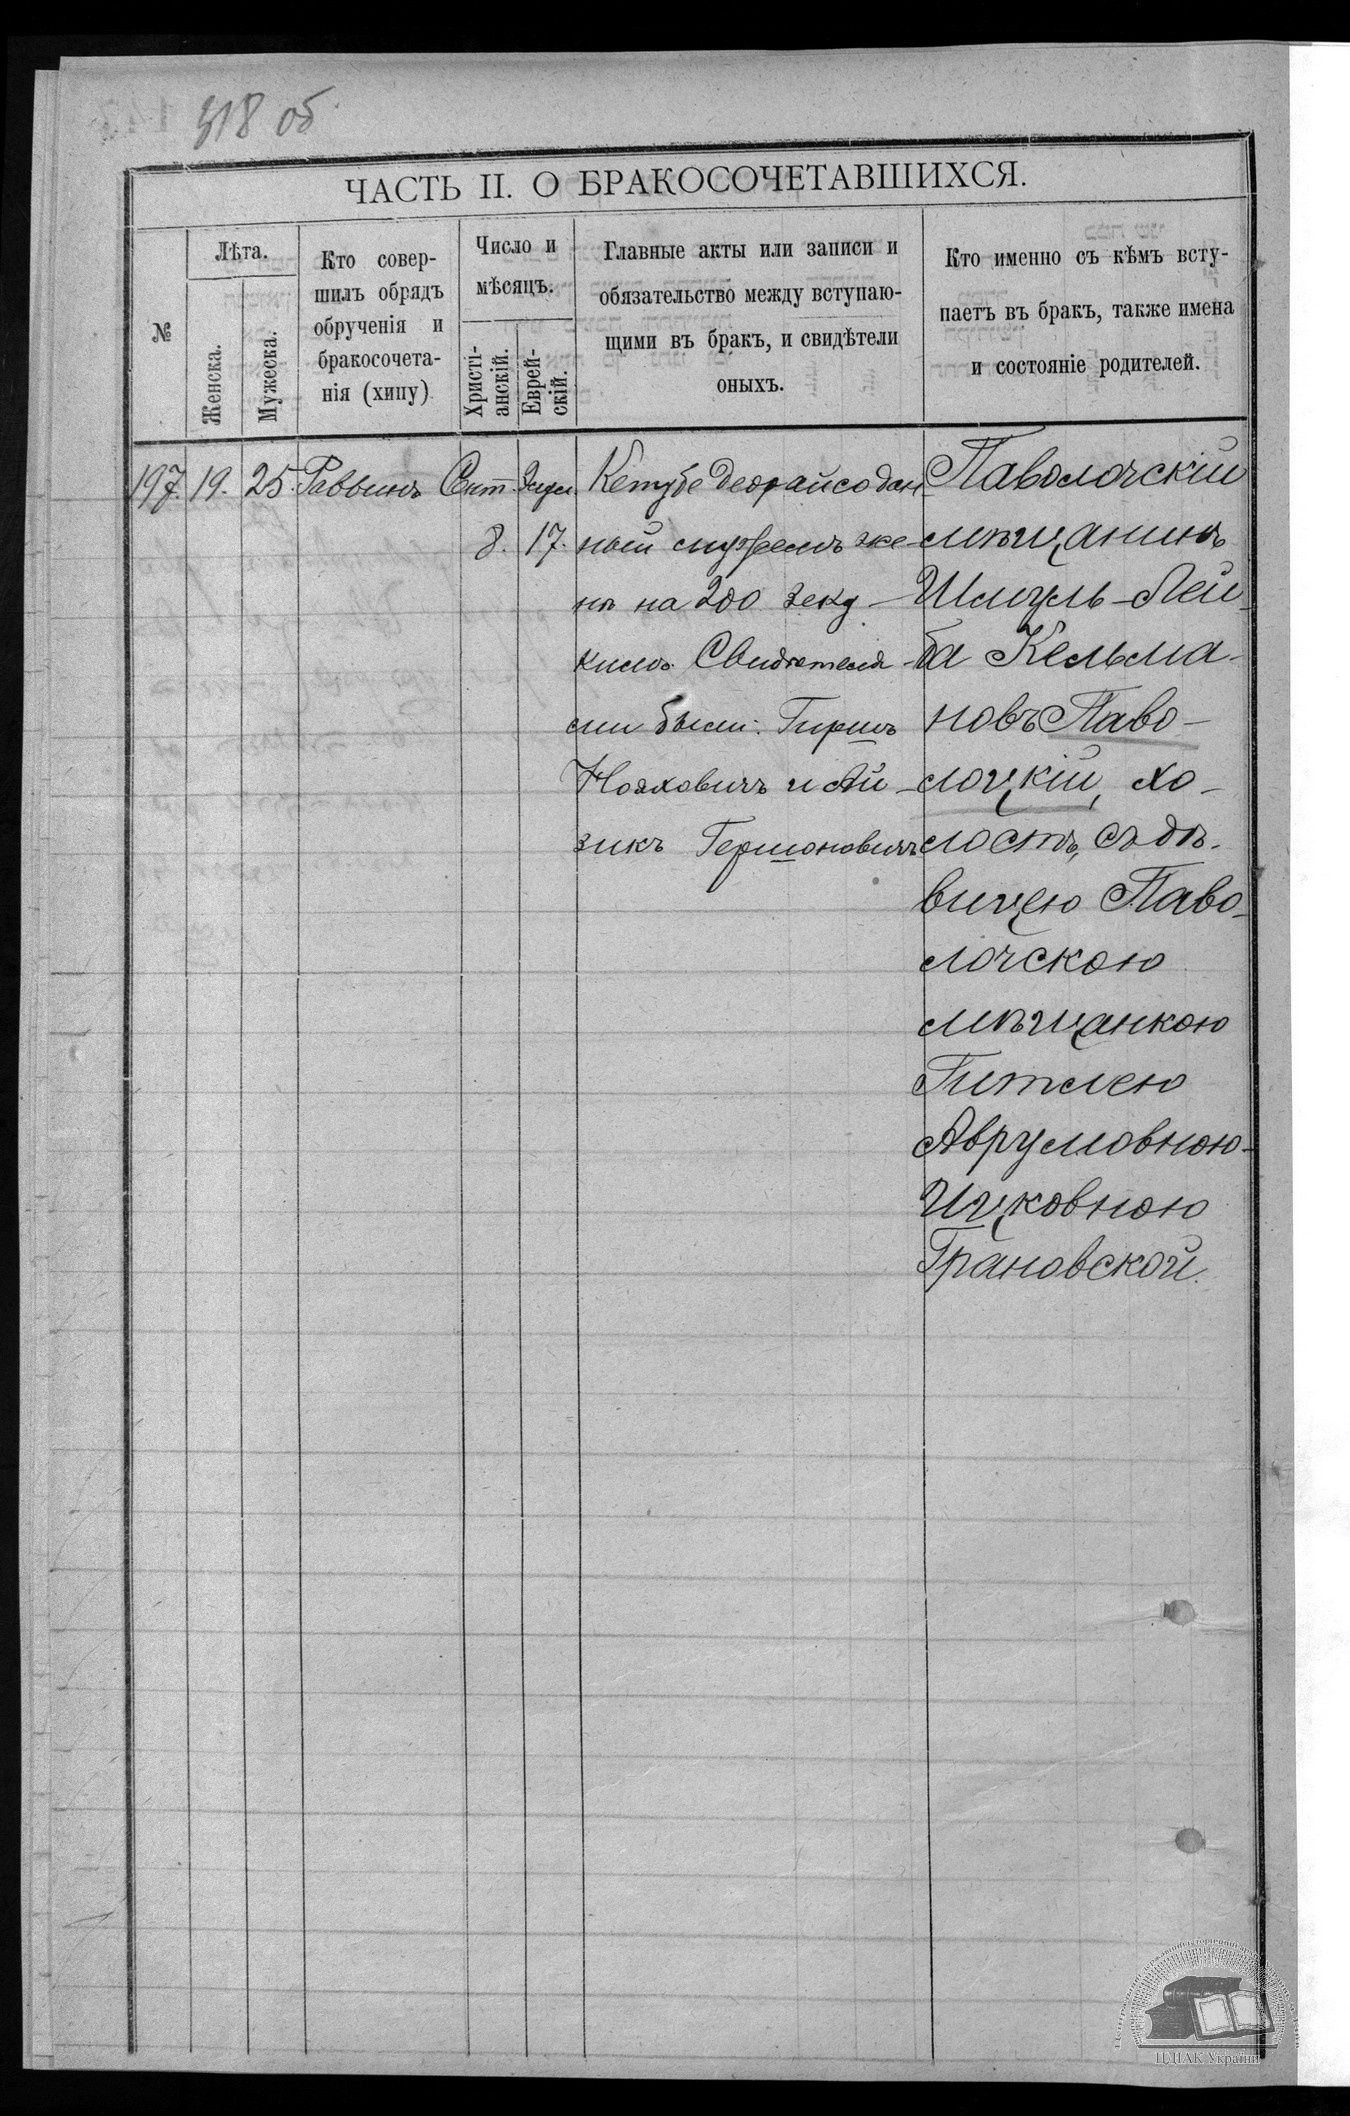 318 об
ЧАСТЬ II. О БРАКОСОЧЕТАВШИХСЯ.
№
Лѣта.
Женска.
Мужеска.
Кто совер-
шилъ обрядъ
обрученія и
бракосочета-
нія (хипу)
Число и
мѣсяцъ.
Христі-
анскій.
Еврей-
скій.
Главные акты или записи и
обязательство между вступаю-
щими въ бракъ, и свидѣтели
оныхъ.
Кто именно съ кѣмъ всту-
паетъ въ бракъ, также имена
и состояніе родителей.
197. 19. 25. Раввинъ Сент. Элул.
8. 17.
Кетубе Деорайсо дан-
ный мужемъ же-
нѣ на 200 зеку-
кимъ. Свидѣтеля-
ми были: Гиршъ
Нояховичъ и Ай-
зикъ Гершоновичъ
Паволочскій
мѣщанинъ
Шмуль-Лей-
ба Кельма-
новъ Паво-
лоцкій, хо-
лостъ, съ дѣ-
вицею Паво-
лочскою
мѣщанкою
Гитлею
Аврумовною-
Ицковною
Грановской.
ЦДІАК України